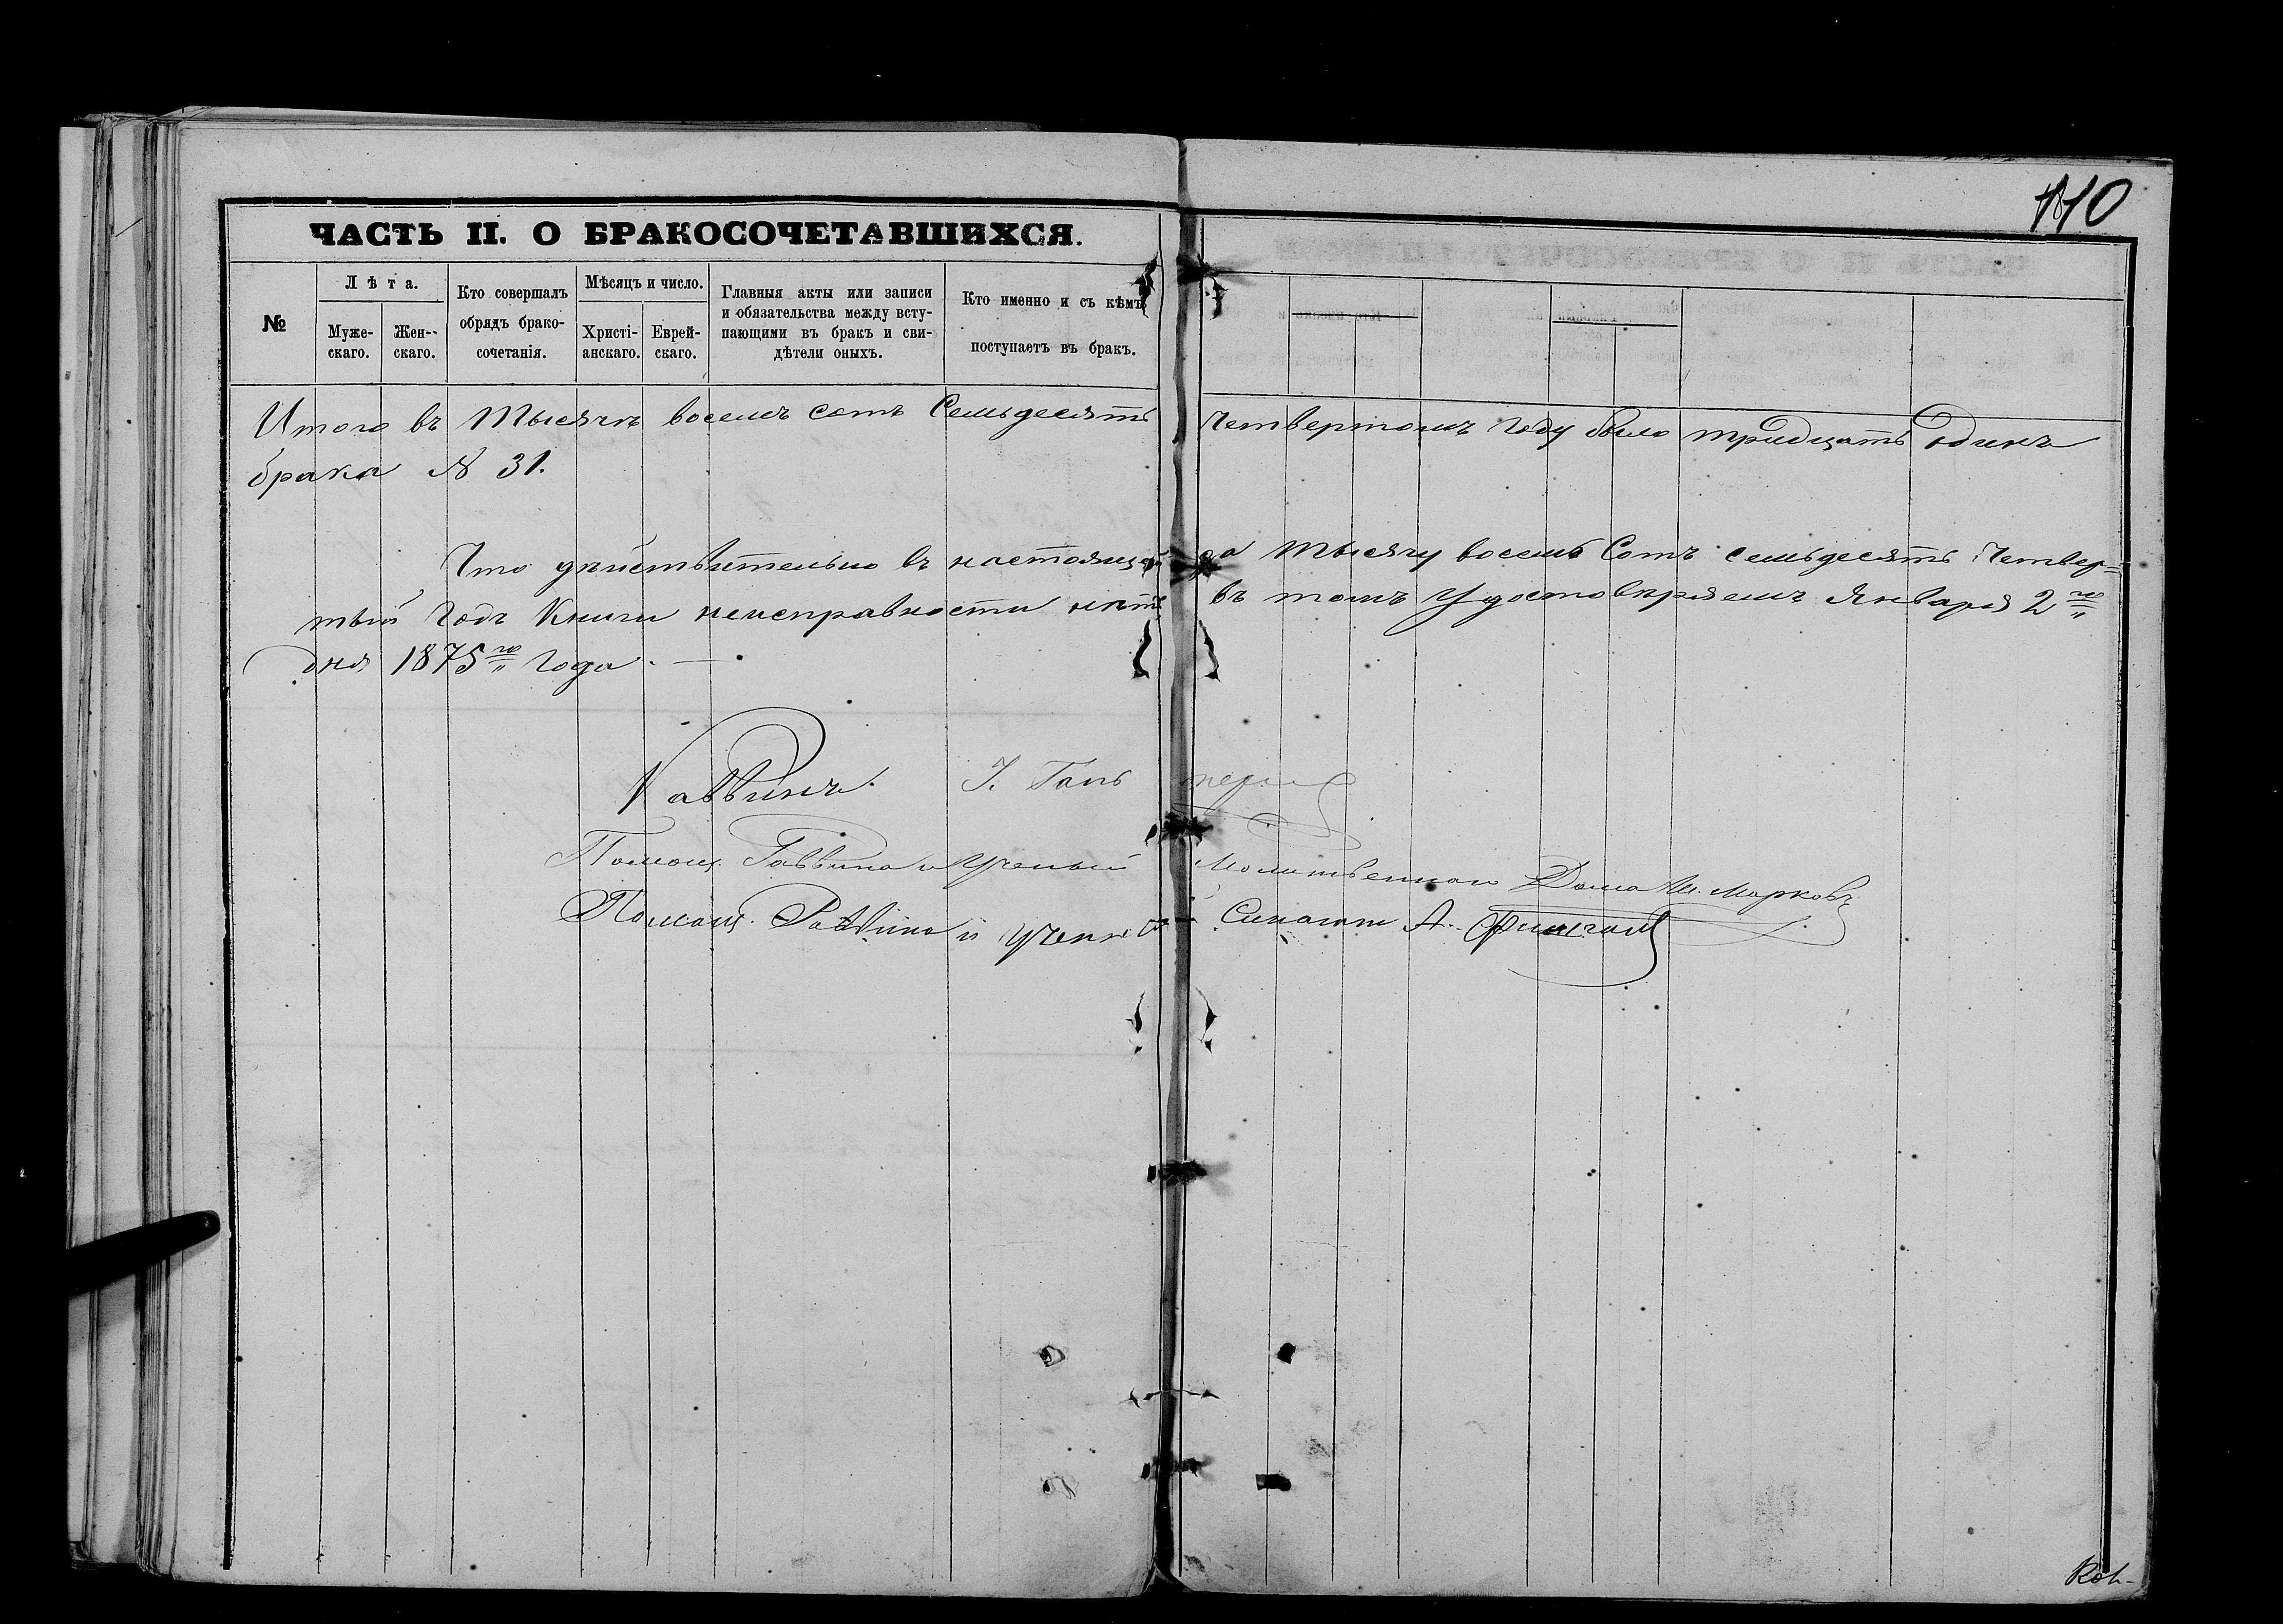 110
ЧАСТЬ II. О БРАКОСОЧЕТАВШИХСЯ.
№
Лѣта.
Муже-
скаго.
Жен-
скаго.
Кто совершалъ
обрядъ брако-
сочетанія.
Мѣсяцъ и число.
Христі-
анскаго.
Еврей-
скаго.
Главныя акты или записи
и обязательства между всту-
пающими въ бракъ и сви-
дѣтели оныхъ.
Кто именно и съ кѣмъ
поступаетъ въ бракъ.
Итого въ Тысяча восемъ сотъ Семьдесятъ Четвертомъ Году было тридцать Одинъ
брака N 31.
Что дѣйствительно въ настоящей за тысячу восемь Сотъ семьдесятъ Четвер=
тый Годъ Книги неисправности нѣтъ въ томъ Удостовѣряемъ Января 2го
дня 1875го Года.
Раввинъ
Помощ. Раввина и Ученый Молитвеннаго Дома Ш. Марковъ
Помощ. Раввина и Ученый А.